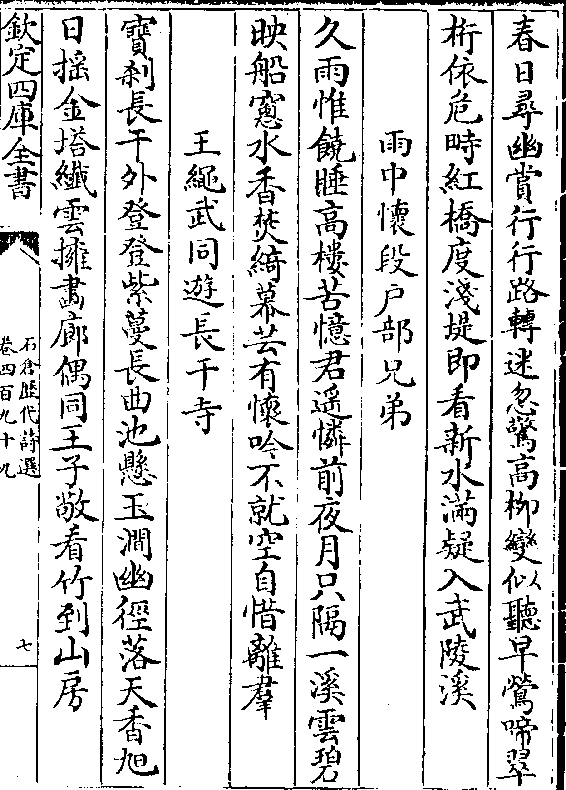 春日尋幽賞行行路轉迷忽驚高柳變似聽早鶯啼翠
桁依危畤紅橋度淺堤即看新水滿疑入武陵溪
雨中懷段户部兄弟
久雨惟饒睡高樓苦憶君遥憐前夜月只隔一溪雲碧
映船窻水香焚綺幕芸有懷吟不就空自惜離羣
王繩武同遊長干寺
寶刹長干外登登紫蔓長曲池懸玉澗幽徑落天香旭
日揺金塔纖雲擁畵廊偶同王子敞看竹到山房
欽定四庫全書
石倉歷代詩選
卷四百九十九
七